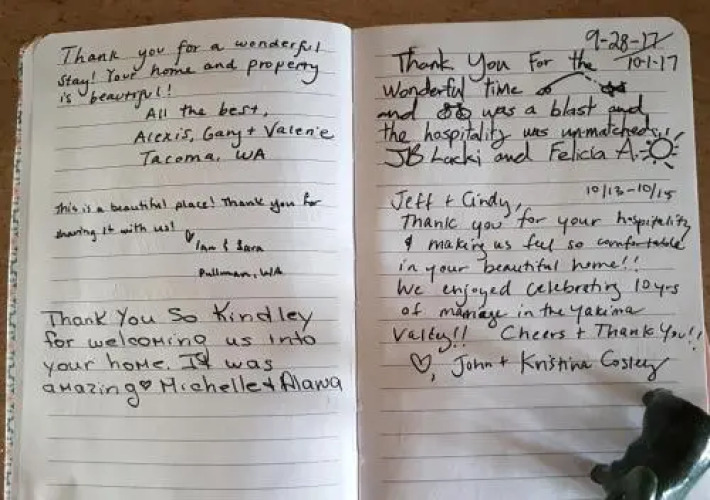 Thank you for a wonderful
stay! Your home and property
is beautiful!
All the best,
Alexis, Gary + Valerie
Tacoma, WA
This is a beautiful place! Thank you for
sharing it with us!
Ian & Sara
Pullman, WA
Thank You So Kindley
for welcoming us into
your home. It was
amazing♥ Michelle + Alana
9-28-17
10-1-17
Thank You For the
Wonderful time
and was a blast and
the hospitality was unmatched!!
JB Lacki and Felicia A.
10/13-10/15
Jeff + Cindy,
Thank you for your hospitality
& making us feel so comfortable
in your beautiful home!!
We enjoyed celebrating 10 yrs
of marriage in the Yakima
Valley!! Cheers + Thank You!!
♡, John + Kristina Cosley